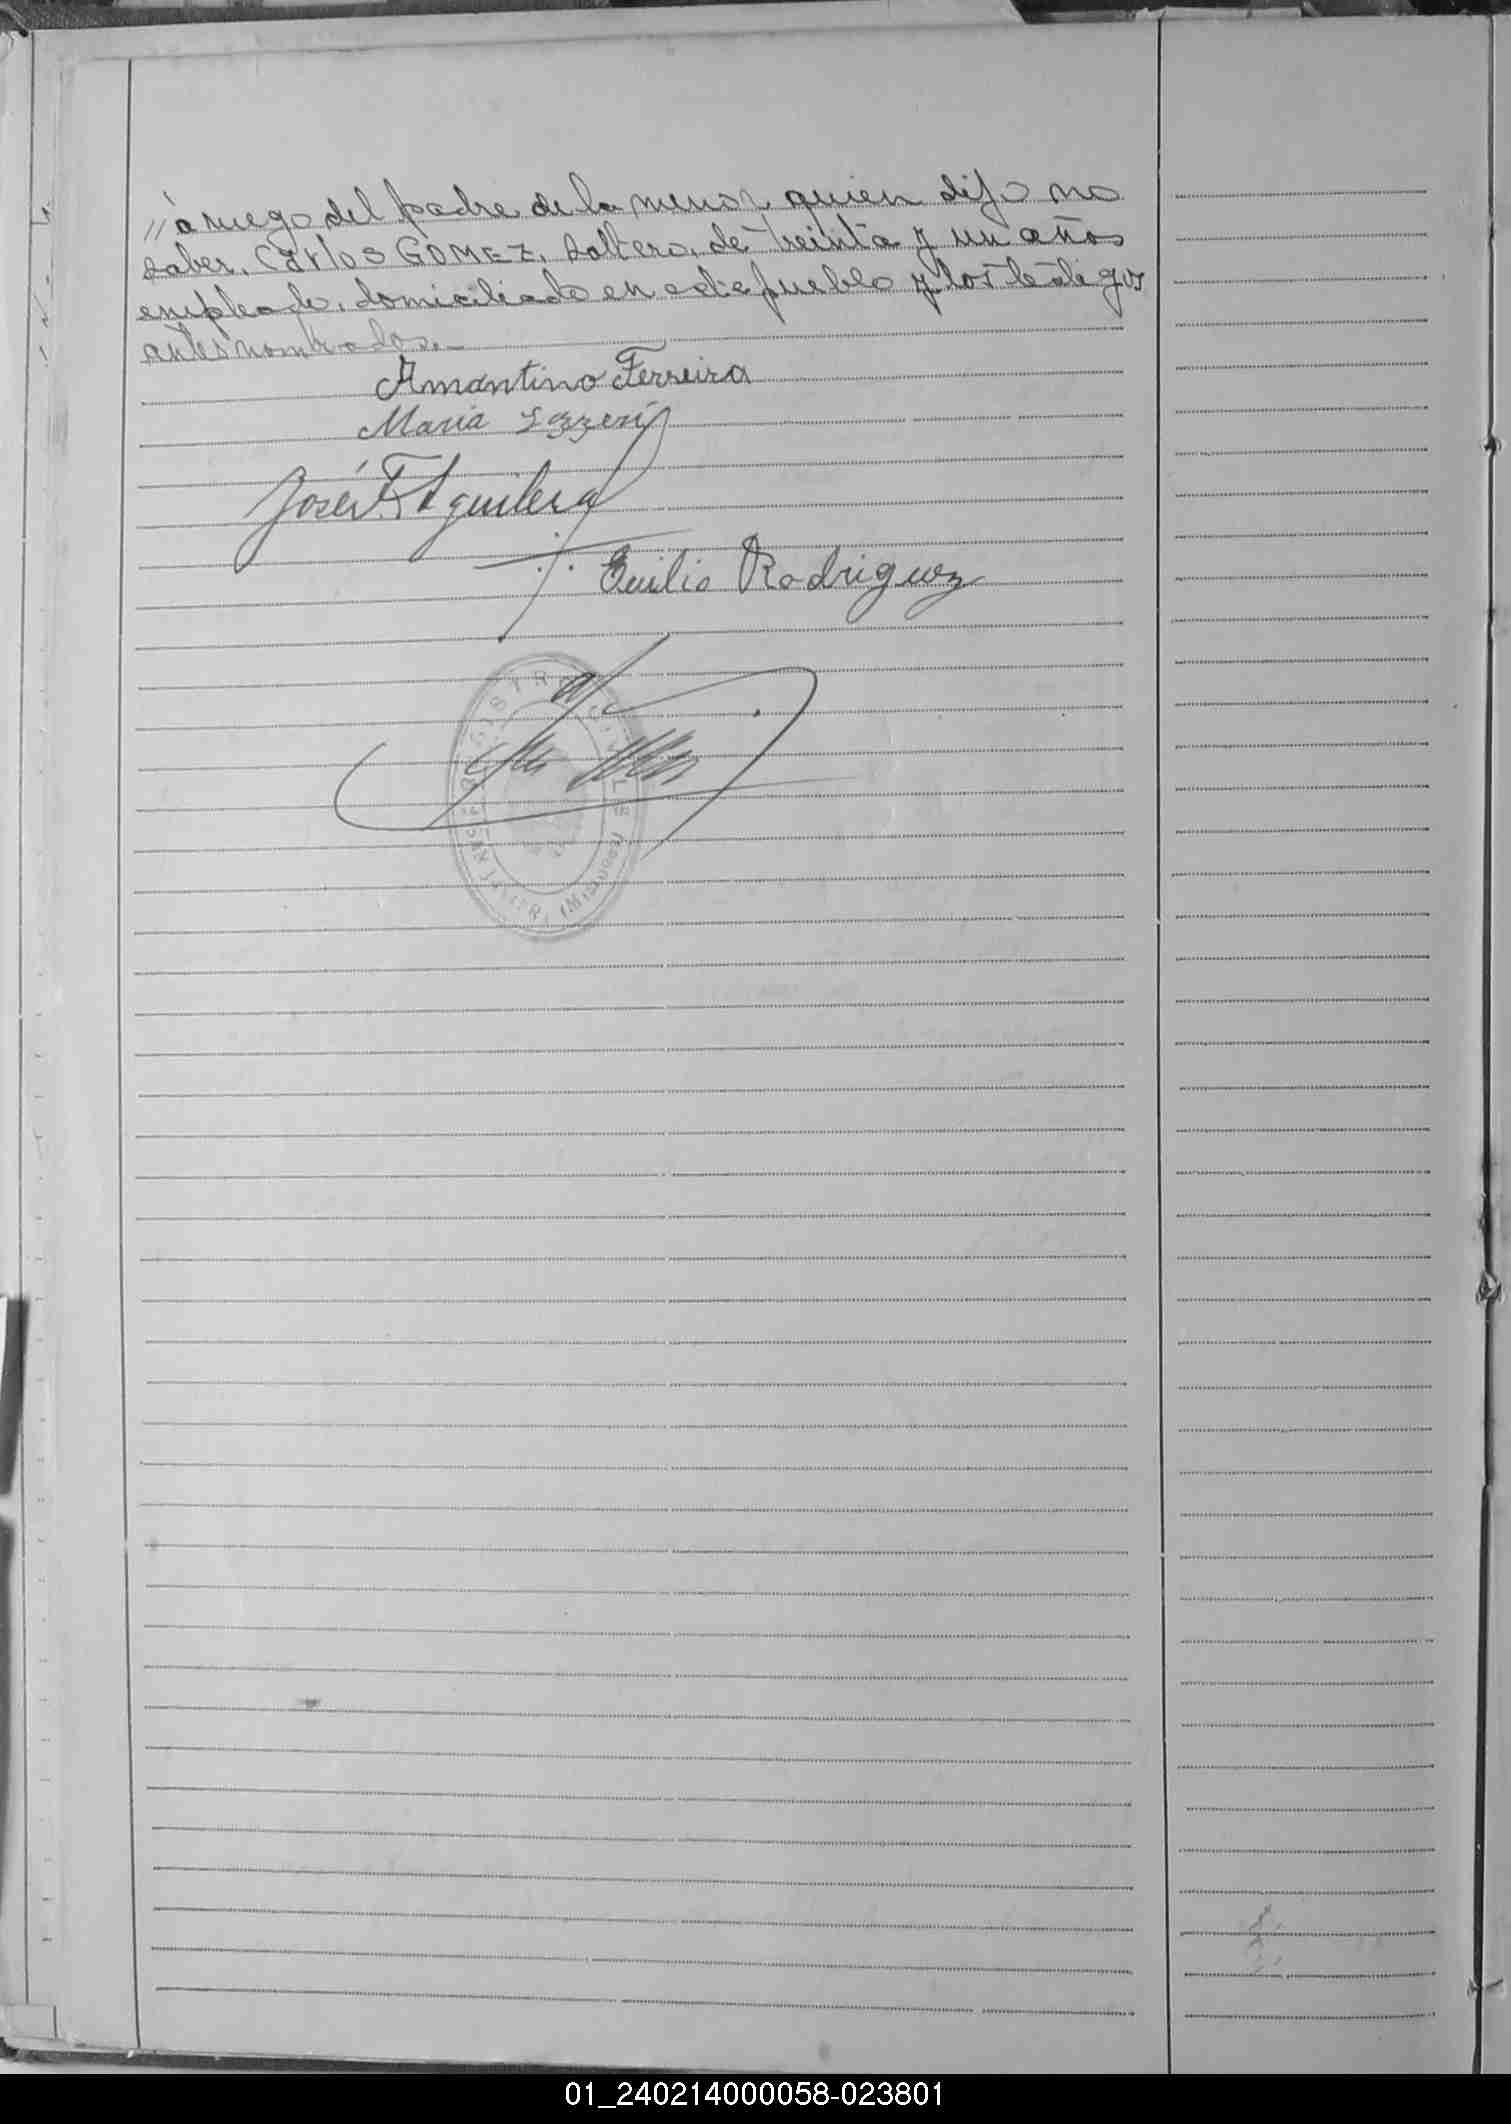 // à ruego del padre de la menor quien dijo no
saber, Carlos GOMEZ, soltero, de treinta y un años
empleado, domiciliado en este pueblo y los testigos
antes nombrados.-
Amantino Ferreira
Maria
José F. Aguilera
Emilio Rodriguez
REGISTRO CIVIL DE
SAN JAVIER (Misiones)
01_240214000058-023801